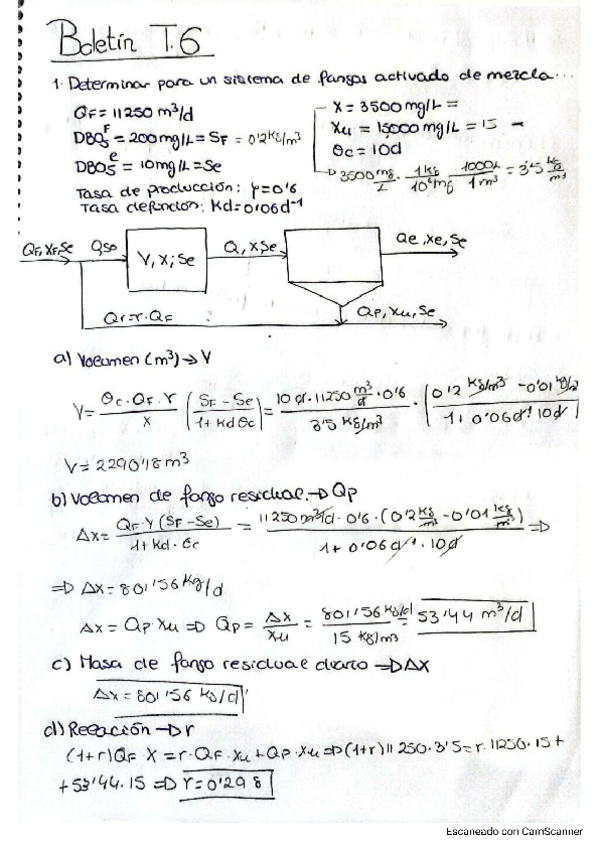 Boletín T.6
1. Determinar para un sistema de fangos activado de mezcla...
QF = 11250 m³/d
DBO5^F = 200 mg/L = SF = 0'2 kg/m³
DBO5^e = 10 mg/L = Se
Tasa de producción: γ = 0'6
Tasa defunción: Kd = 0'06 d⁻¹
X = 3500 mg/L =
Xu = 15000 mg/L = 15 -
Θc = 10d
3500 mg/L · 1 kg/10⁶ mg · 1000 L/1 m³ = 3'5 kg/m³
QF, XF, Se Qso V, X, Se Q, X, Se Qe, xe, Se
Qr = r·QF Qp, Xu, Se
a) Volumen (m³) → V
V = Θc · QF · Y / X (SF - Se / 1 + Kd Θc) = 10 d · 11250 m³/d · 0'6 / 3'5 kg/m³ · (0'2 kg/m³ - 0'01 kg/ / 1 + 0'06 d⁻¹ 10d)
V = 2290'18 m³
b) Volumen de fango residual → Qp
Δx = QF · Y (SF - Se) / 1 + Kd · Θc = 11250 m³/d · 0'6 · (0'2 kg/m³ - 0'01 kg/m³) / 1 + 0'06 d⁻¹ · 10d ⇒
⇒ Δx = 801'56 kg/d
Δx = Qp · Xu ⇒ Qp = Δx / Xu = 801'56 kg/d / 15 kg/m³ = 53'44 m³/d
c) Masa de fango residual e diario ⇒ ΔX
Δx = 801'56 kg/d
d) Relación → r
(1+r) QF · X = r · QF · Xu + Qp · Xu ⇒ (1+r) 11250 · 3'5 = r · 11250 · 15 +
+ 53'44 · 15 ⇒ r = 0'298
Escaneado con CamScanner